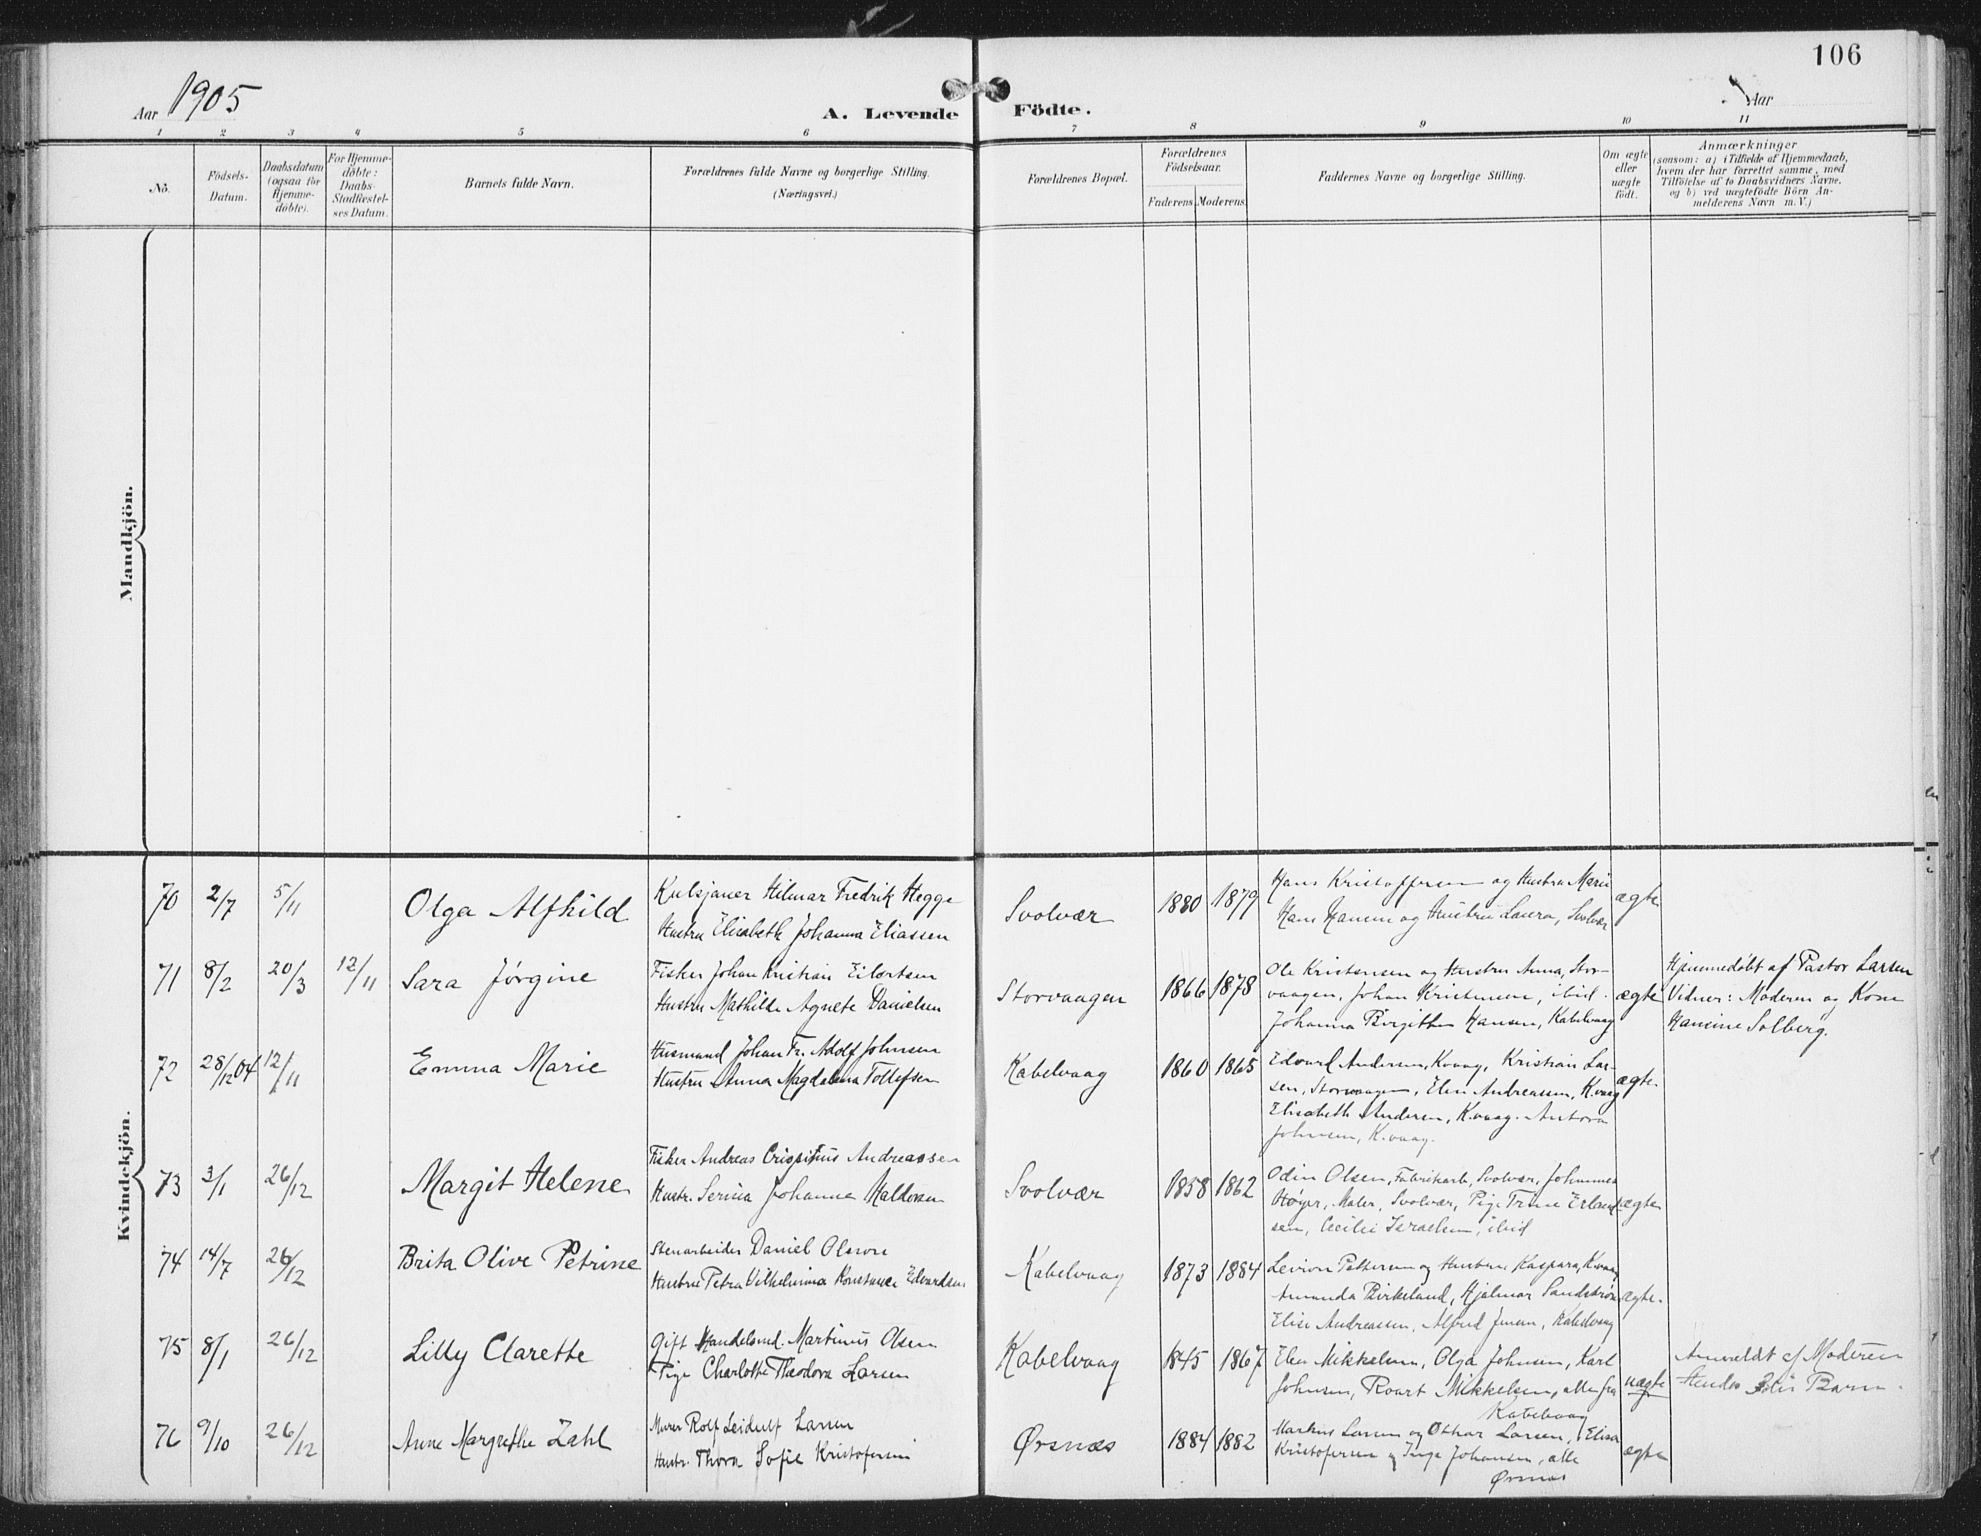 106
Aar 1905
A. Levende Födte.
Aar
1 2 3 4 5 6 7 8 9 10 11
No.
Födsels-Datum.
Daabsdatum (ogsaa for Hjemme-döbte).
For Hjemme-döbte: Daabs-Stadfæstel-ses Datum.
Barnets fulde Navn.
Forældrenes fulde Navne og borgerlige Stilling. (Næringsvei.)
Forældrenes Bopæl.
Forældrenes Födselsaar.
Faderens. Moderens.
Faddernes Navne og borgerlige Stilling.
Om ægte eller uægte födt.
Anmærkninger
(sonsom: a) i Tilfælde af Hjemmedaab,
hvem der har forrettet samme, med
Tilföielse af to Daabsvidners Navne,
og b) ved uægtefödte Börn An-
melderens Navn m. V.)
Mandkjön.
Kvindekjön.
70 2/7 5/11 Olga Alfhild
Kulsjauer Hilmar Fredrik Hegge
Hustru Elisabeth Johanna Eliassen
Svolvær 1880 1879
Hans Kristoffersen og Hustru Marie
Hans Hansen og Hustru Laura, Svolvær
ægte
71 8/2 20/3 12/11 Sara Jørgine
Fisker Johan Kristian Eilertsen
Hustru Mathilde Agnete Danielsen
Storvaagen 1866 1878
Ole Kristensen og Hustru Anna, Stor-
vaagen, Johan Kristensen, ibid.
Johanna Birgitte Hansen, Kabelvaag
ægte
Hjemmedøbt af Pastor Larsen
Vidner: Moderen og Kone
Hansine Solberg.
72 28/12 04 12/11 Emma Marie
Husmand Johan Fr. Adolf Johnsen
Hustru Anna Magdalena Tollefsen
Kabelvaag 1860 1865
Edvard Andersen, Kvaag, Kristian Lar-
sen, Storvaagen, Elen Andreassen, K.vaag
Elisabeth Andersen, K.vaag. Antora
Johnsen, K.vaag.
ægte
73 3/1 26/12 Margit Helene
Fisker Andreas Crispinus Andreassen
Hustr. Serina Johanna Haldorsen
Svolvær 1858 1862
Odin Olsen, Fabrikarb., Svolvær, Johannes
Høyer, Maler, Svolvær, Pige Trine Erland-
sen, Cecilie Israelsen, ibid
ægte
74 14/7 26/12 Brita Olive Petrine
Stenarbeider Daniel Olsson
Hustru Petra Vilhelmina Konstanse Edvardsen
Kabelvaag 1873 1884
Pettersen og Hustru Kaspara, K.vaag
Amanda Birkeland, Hjalmar Sandstrøm
Elise Andreassen, Alfred Jensen, Kabelvaag
ægte.
75 8/1 26/12 Lilly Clarette
Gift Handelsmd. Martinus Olsen
Pige Charlotte Theodora Larsen
Kabelvaag 1845 1867
Elen Mikkelsen, Olga Johnsen, Karl
Johnsen, Roart Mikkelsen, alle fra
Kabelvaag
uægte
Anmeldt af Moderen
Hendes Barn.
76 9/10 26/12 Anne Margrethe Zahl
Murer Rolf Leidulf Larsen
Hustr. Thora Sofie Kristofersen
Ørsnæs 1884 1882
Markus Larsen og Othar Larsen, Elisa
Kristofersen og Inga Johansen, alle
Ørsnæs
ægte